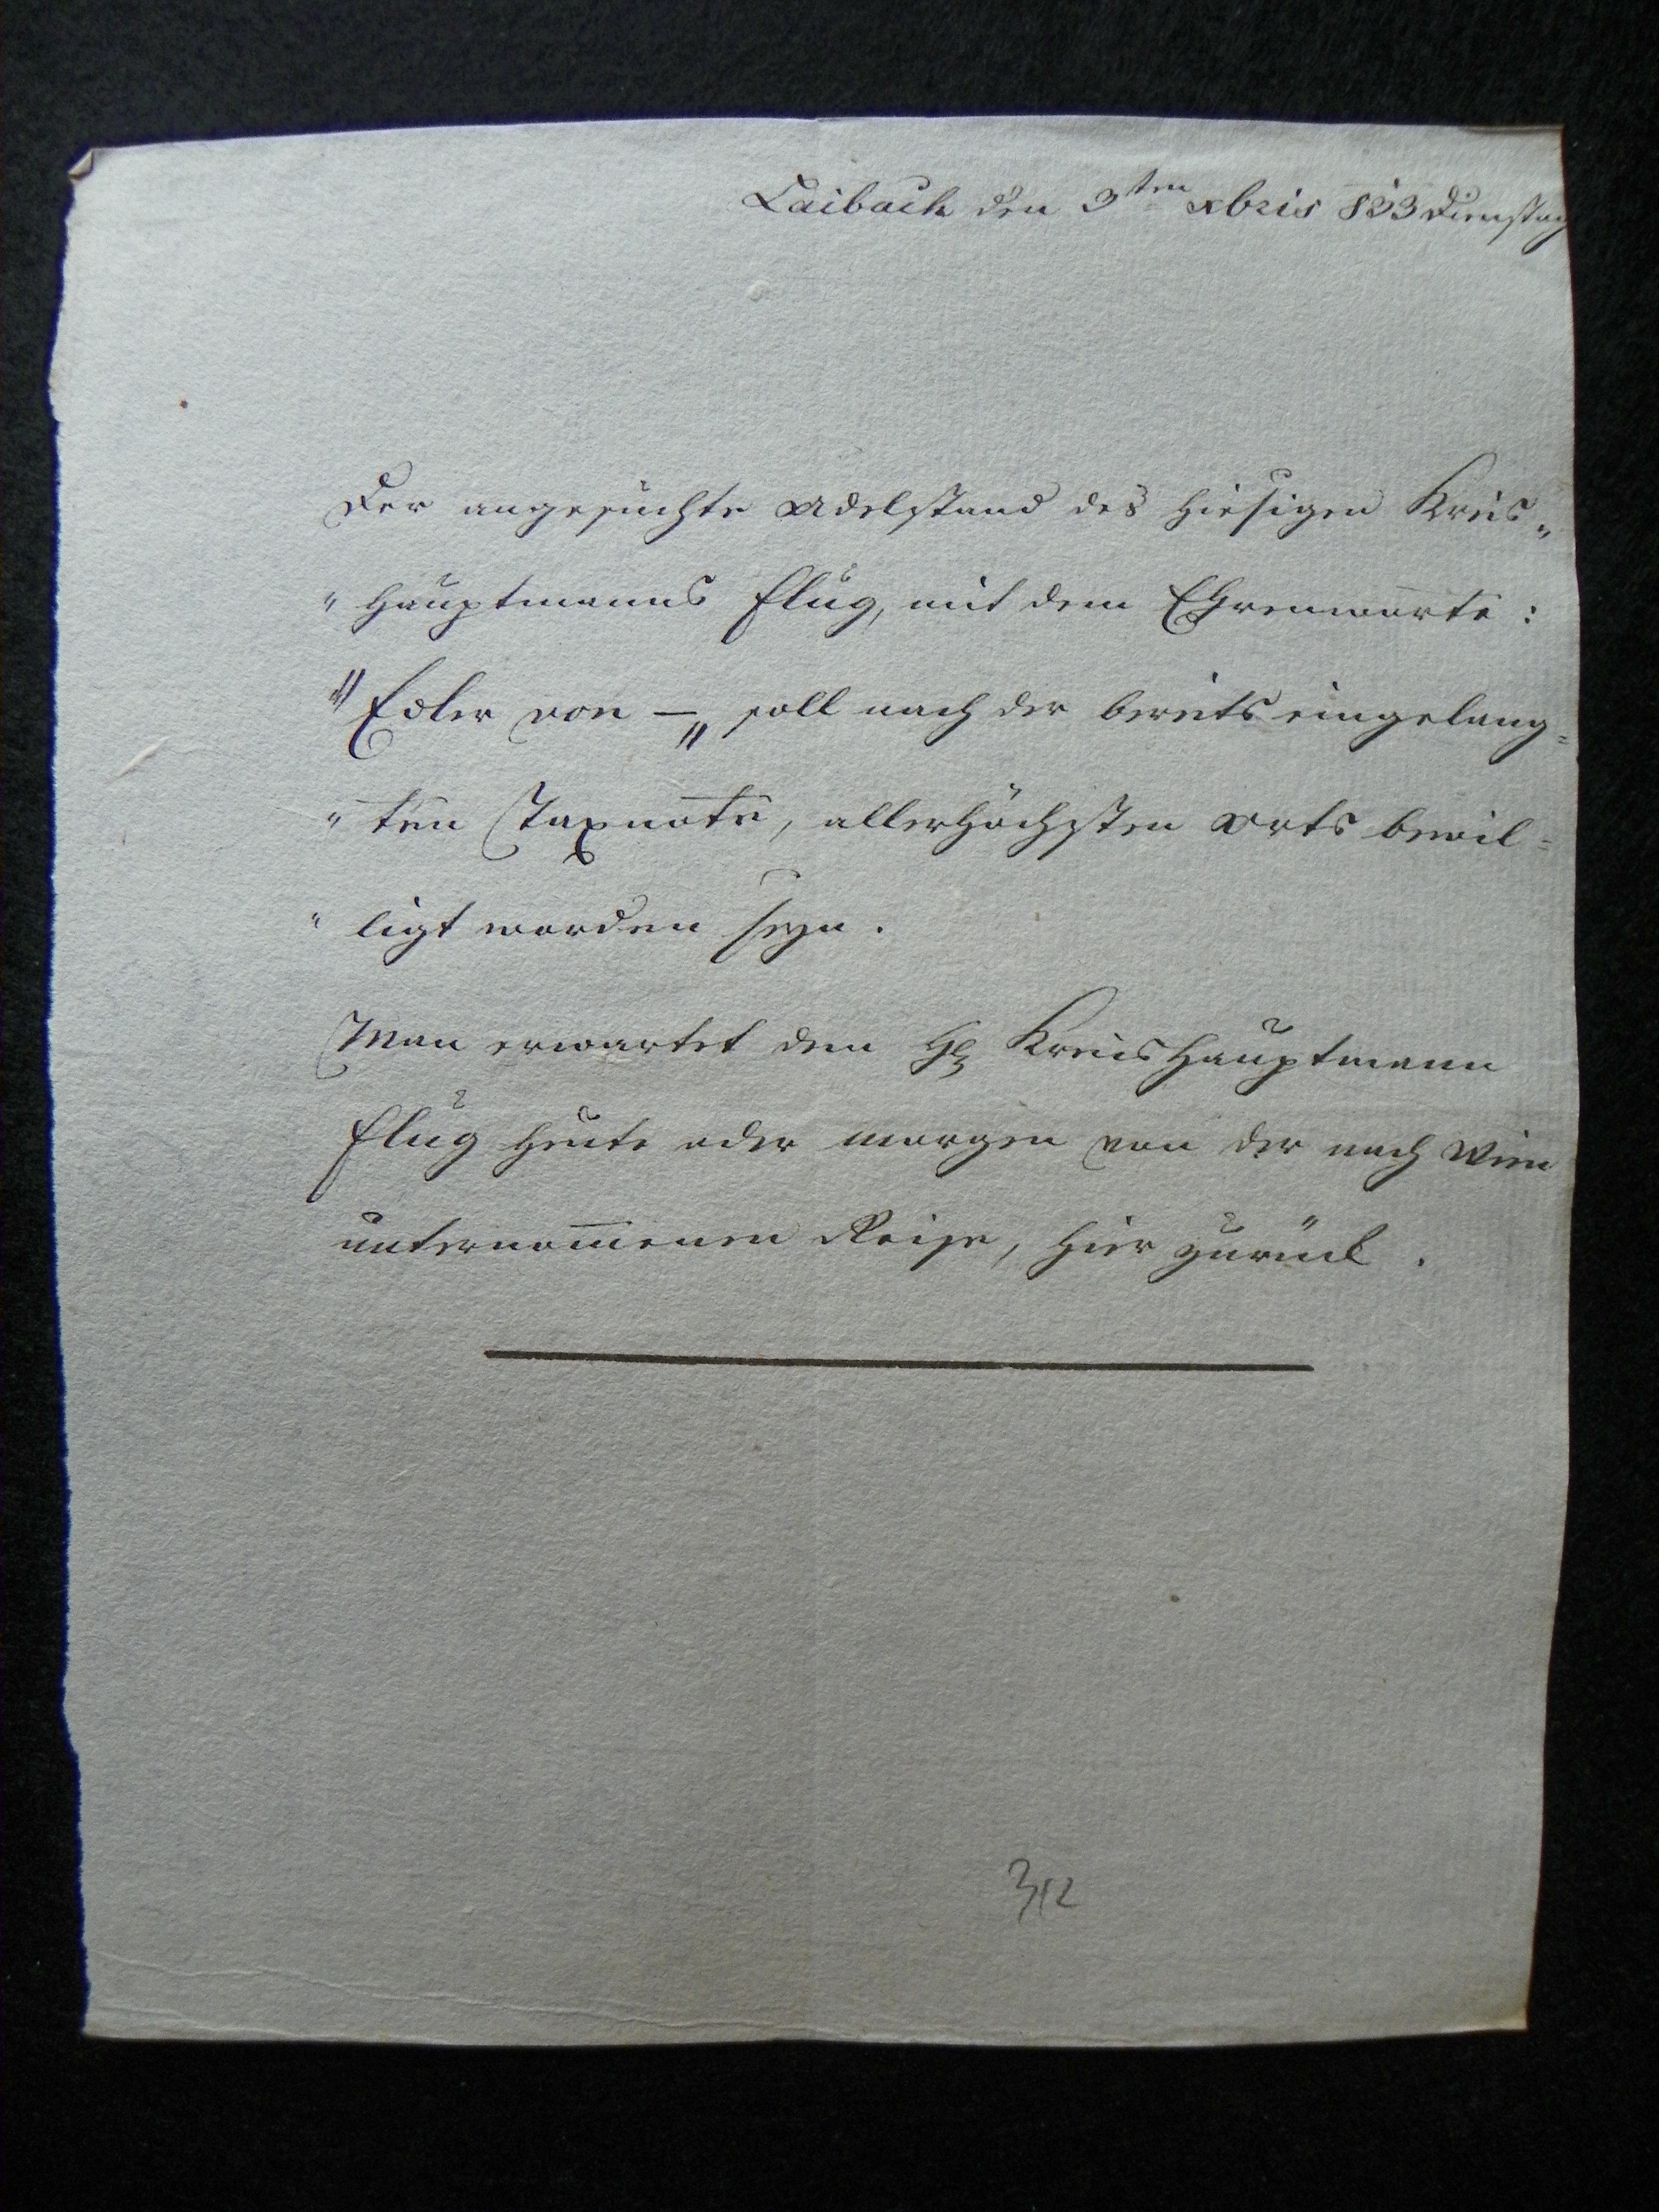 Laibach den 3ten xbris 833 Dienstag
Der angesuchte Adelstand des hiesigen Kreis„
„hauptmanns Flug, mit dem Ehrenworte:
„Edler von —„ soll nach der bereits eingelang=
„ten Taxnote, allerhöchsten Orts bewil=
„ligt worden seyn.
Man erwartet den H: Kreishauptmann
Flug heute oder morgen von der nach Wien
unternom̅enen Reise, hier zurück.
3/12